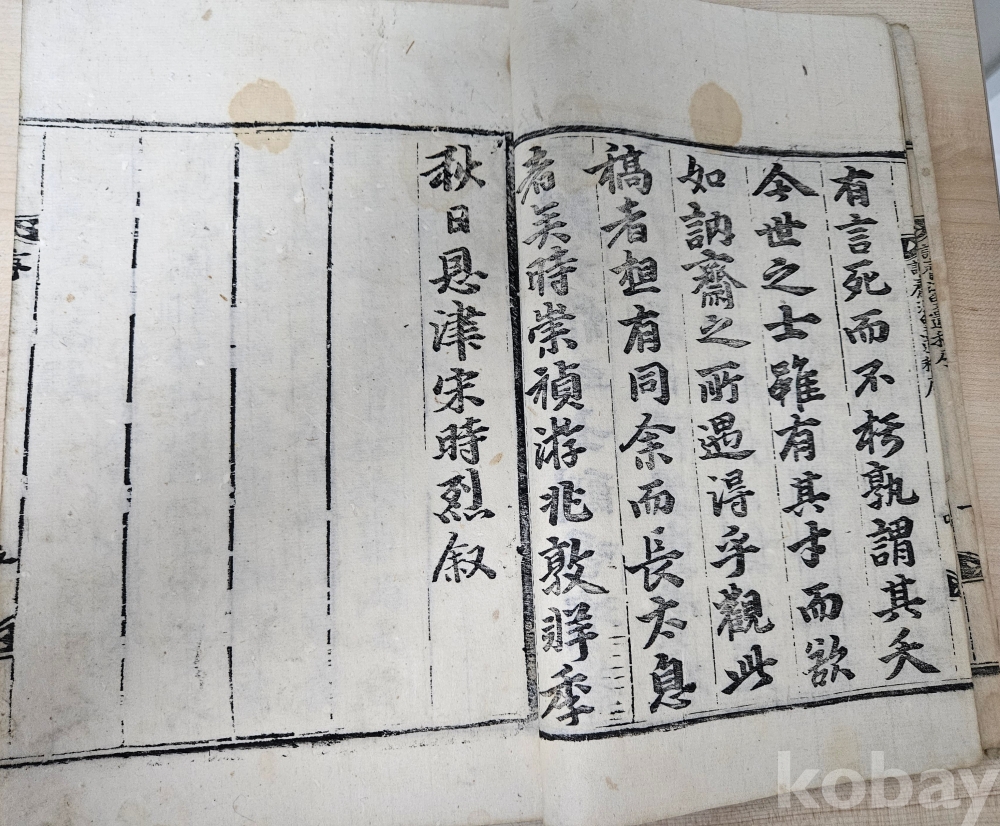 有言死而不朽孰謂其夭
今世之士雖有其才而欲
如訥齋之所遇得乎觀此
稿者想有同余而長太息
者矣時崇禎游兆敦牂季
秋日恩津宋時烈叙
序
kobay